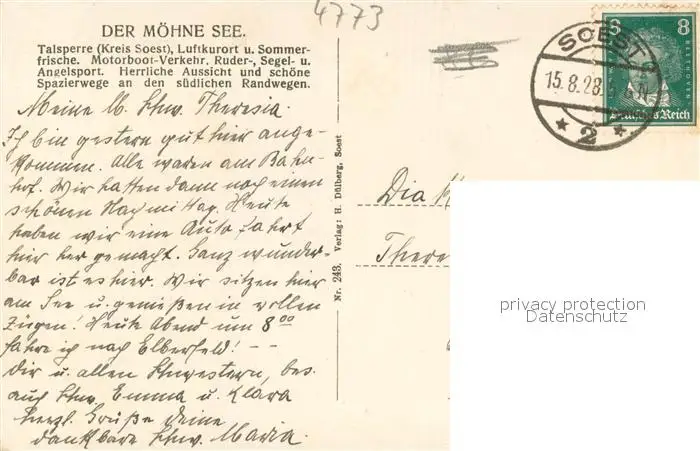 4773
DER MÖHNE SEE.
Talsperre (Kreis Soest), Luftkurort u. Sommer-
frische. Motorboot-Verkehr, Ruder-, Segel- u.
Angelsport. Herrliche Aussicht und schöne
Spazierwege an den südlichen Randwegen.
Meine lb. Schw. Theresia.
Ich bin gestern gut hier ange-
kommen. Alle waren am Bahn-
hof. Wir hatten dann noch einen
schönen Nachmittag. Heute
haben wir eine Autofahrt
hier her gemacht. Ganz wunder-
bar ist es hier. Wir sitzen hier
am See u. genießen in vollen
Zügen! Heute Abend um 8 00
fahre ich nach Elberfeld! - -
Dir u. allen Schwestern, bes.
auch Schw. Emma u. Klara
herzl. Grüße deine
dankbare Schw. Maria.
Nr. 243. Verlag: H. Dülberg, Soest
SOEST
15.8.28.
* 2 *
8
Deutsches Reich
Dia
There
privacy protection
Datenschutz